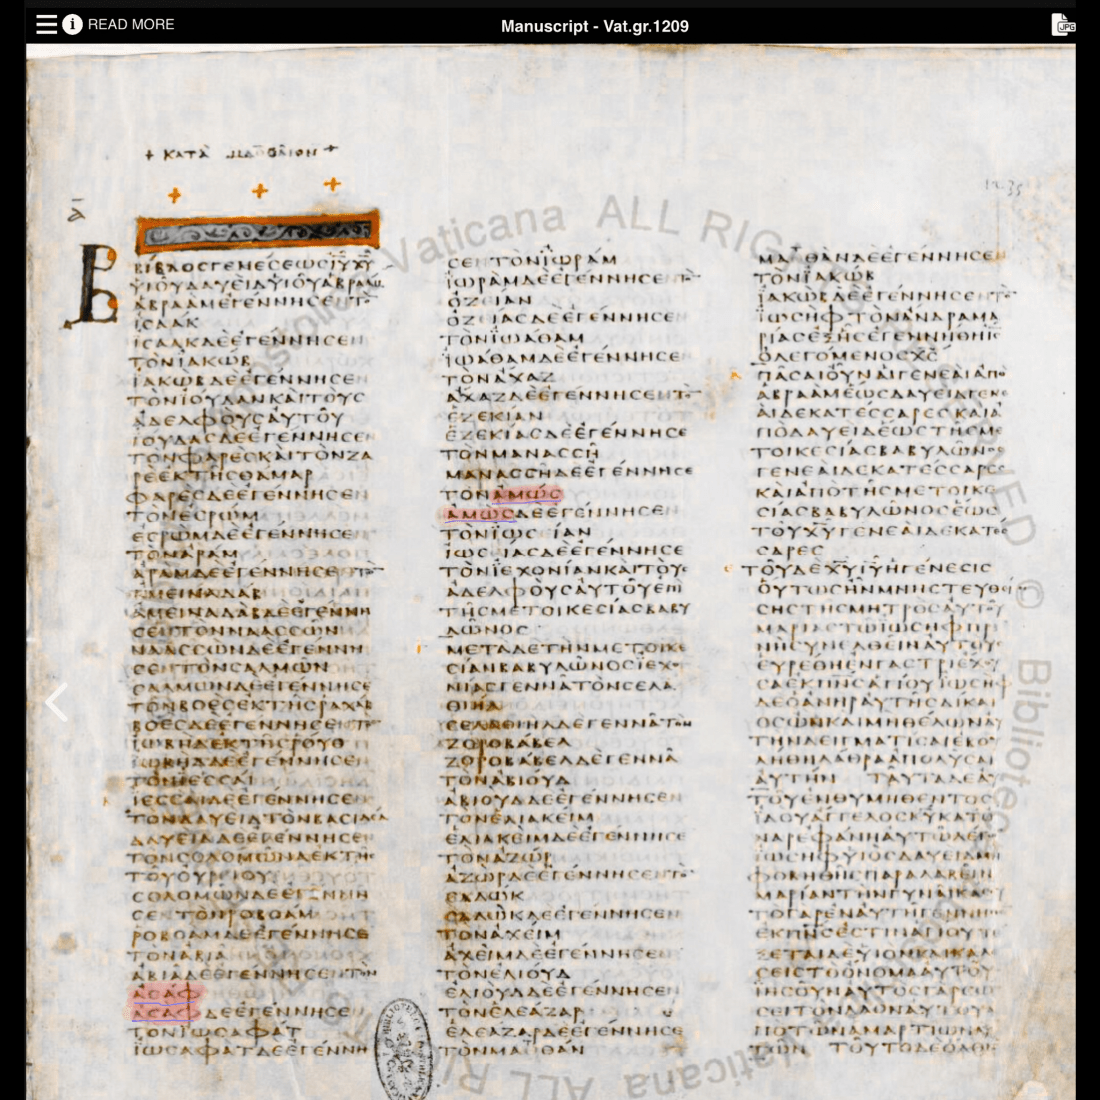 READ MORE
Manuscript - Vat.gr.1209
JPG
+ ΚΑΤΑ ΜΑΘΘΑΙΟΝ +
Vaticana ALL RIG
ᾱ
ΒΙΒΛΟСΓΕΝΕСΕѠСΙΥΧΥ
ΥΙΟΥΔΑΥΕΙΔΥΙΟΥΑΒΡΑΑΜ
ΑΒΡΑΑΜΕΓΕΝΝΗСΕΝΤΟ
ΙСΑΑΚ
ΙСΑΑΚΔΕΕΓΕΝΝΗСΕΝ
ΤΟΝΙΑΚѠΒ
ΙΑΚѠΒΔΕΕΓΕΝΝΗСΕΝ
ΤΟΝΙΟΥΔΑΝΚΑΙΤΟΥС
ΑΔΕΛΦΟΥСΑΥΤΟΥ
ΙΟΥΔΑСΔΕΕΓΕΝΝΗСΕΝ
ΤΟΝΦΑΡΕСΚΑΙΤΟΝΖΑ
ΡΕΕΚΤΗСΘΑΜΑΡ
ΦΑΡΕСΔΕΕΓΕΝΝΗСΕΝ
ΤΟΝΕСΡѠΜ
ΕСΡѠΜΔΕΕΓΕΝΝΗСΕΝ
ΤΟΝΑΡΑΜ
ΑΡΑΜΔΕΕΓΕΝΝΗСΕΝΤΟ
ΑΜΕΙΝΑΔΑΒ
ΑΜΕΙΝΑΔΑΒΔΕΕΓΕΝΝΗ
СΕΝΤΟΝΝΑΑССѠΝ
ΝΑΑССѠΝΔΕΕΓΕΝΝΗ
СΕΝΤΟΝСΑΛΜѠΝ
СΑΛΜѠΝΔΕΕΓΕΝΝΗСΕ
ΤΟΝΒΟΕСΕΚΤΗСΡΑΧΑΒ
ΒΟΕСΔΕΕΓΕΝΝΗСΕΝΤΟ
ΙѠΒΗΔΕΚΤΗСΡΟΥΘ
ΙѠΒΗΔΔΕΕΓΕΝΝΗСΕΝ
ΤΟΝΙΕССΑΙ
ΙΕССΑΙΔΕΕΓΕΝΝΗСΕΝ
ΤΟΝΔΑΥΕΙΔΤΟΝΒΑСΙΛΕΑ
ΔΑΥΕΙΔΔΕΕΓΕΝΝΗСΕΝ
ΤΟΝСΟΛΟΜѠΝΑΕΚΤΗС
ΤΟΥΟΥΡΕΙΟΥ
СΟΛΟΜѠΝΔΕΕΓΕΝΝΗ
СΕΝΤΟΝΡΟΒΟΑΜ
ΡΟΒΟΑΜΔΕΕΓΕΝΝΗСΕ
ΤΟΝΑΒΙΑ
ΑΒΙΑΔΕΕΓΕΝΝΗСΕΝΤΟΝ
ΑСΑΦ
ΑСΑΦΔΕΕΓΕΝΝΗСΕΝ
ΤΟΝΙѠСΑΦΑΤ
ΙѠСΑΦΑΤΔΕΕΓΕΝΝΗ
СΕΝΤΟΝΙѠΡΑΜ
ΙѠΡΑΜΔΕΕΓΕΝΝΗСΕΝΤΟ
ΟΖΕΙΑΝ
ΟΖΕΙΑСΔΕΕΓΕΝΝΗСΕΝ
ΤΟΝΙѠΑΘΑΜ
ΙѠΑΘΑΜΔΕΕΓΕΝΝΗСΕ
ΤΟΝΑΧΑΖ
ΑΧΑΖΔΕΕΓΕΝΝΗСΕΝΤΟ
ΕΖΕΚΙΑΝ
ΕΖΕΚΙΑСΔΕΕΓΕΝΝΗСΕ
ΤΟΝΜΑΝΑССΗ
ΜΑΝΑССΗΔΕΕΓΕΝΝΗСΕ
ΤΟΝΑΜѠС
ΑΜѠСΔΕΕΓΕΝΝΗСΕΝ
ΤΟΝΙѠСΕΙΑΝ
ΙѠСΕΙΑСΔΕΕΓΕΝΝΗСΕ
ΤΟΝΙΕΧΟΝΙΑΝΚΑΙΤΟΥС
ΑΔΕΛΦΟΥСΑΥΤΟΥΕΠΙ
ΤΗСΜΕΤΟΙΚΕСΙΑСΒΑΒΥ
ΛѠΝΟС
ΜΕΤΑΔΕΤΗΝΜΕΤΟΙΚΕ
СΙΑΝΒΑΒΥΛѠΝΟСΙΕΧΟ
ΝΙΑСΓΕΝΝΑΤΟΝСΕΛΑ
ΘΙΗΛ
СΕΛΑΘΙΗΛΔΕΓΕΝΝΑΤΟΝ
ΖΟΡΟΒΑΒΕΛ
ΖΟΡΟΒΑΒΕΛΔΕΓΕΝΝΑ
ΤΟΝΑΒΙΟΥΔ
ΑΒΙΟΥΔΔΕΕΓΕΝΝΗСΕΝ
ΤΟΝΕΛΙΑΚΕΙΜ
ΕΛΙΑΚΕΙΜΔΕΕΓΕΝΝΗСΕ
ΤΟΝΑΖѠΡ
ΑΖѠΡΔΕΕΓΕΝΝΗСΕΝΤΟ
СΑΔѠΚ
СΑΔѠΚΔΕΕΓΕΝΝΗСΕΝ
ΤΟΝΑΧΕΙΜ
ΑΧΕΙΜΔΕΕΓΕΝΝΗСΕΝ
ΤΟΝΕΛΙΟΥΔ
ΕΛΙΟΥΔΔΕΕΓΕΝΝΗСΕΝ
ΤΟΝΕΛΕΑΖΑΡ
ΕΛΕΑΖΑΡΔΕΕΓΕΝΝΗСΕ
ΤΟΝΜΑΘΘΑΝ
ΜΑΘΘΑΝΔΕΕΓΕΝΝΗСΕΝ
ΤΟΝΙΑΚѠΒ
ΙΑΚѠΒΔΕΕΓΕΝΝΗСΕΝΤΟ
ΙѠСΗΦΤΟΝΑΝΔΡΑΜΑ
ΡΙΑСΕΞΗСΕΓΕΝΝΗΘΗΙС
ΟΛΕΓΟΜΕΝΟСΧС
ΠΑСΑΙΟΥΝΑΙΓΕΝΕΑΙΑΠΟ
ΑΒΡΑΑΜΕѠСΔΑΥΕΙΔΓΕΝΕ
ΑΙΔΕΚΑΤΕССΑΡΕСΚΑΙΑ
ΠΟΔΑΥΕΙΔΕѠСΤΗСΜΕ
ΤΟΙΚΕСΙΑСΒΑΒΥΛѠΝΟС
ΓΕΝΕΑΙΔΕΚΑΤΕССΑΡΕС
ΚΑΙΑΠΟΤΗСΜΕΤΟΙΚΕ
СΙΑСΒΑΒΥΛѠΝΟСΕѠС
ΤΟΥΧΥΓΕΝΕΑΙΔΕΚΑΤΕС
СΑΡΕС
ΤΟΥΔΕΧΥΙΥΗΓΕΝΕСΙС
ΟΥΤѠСΗΝΜΝΗСΤΕΥΘΕΙ
СΗСΤΗСΜΗΤΡΟСΑΥΤΟΥ
ΜΑΡΙΑСΤѠΙѠСΗΦΠΡΙ
ΝΗСΥΝΕΛΘΕΙΝΑΥΤΟΥС
ΕΥΡΕΘΗΕΝΓΑСΤΡΙΕΧΟΥ
СΑΕΚΠΝСΑΓΙΟΥΙѠСΗΦ
ΔΕΟΑΝΗΡΑΥΤΗСΔΙΚΑΙ
ΟСѠΝΚΑΙΜΗΘΕΛѠΝΑΥ
ΤΗΝΔΕΙΓΜΑΤΙСΑΙΕΒΟΥ
ΛΗΘΗΛΑΘΡΑΑΠΟΛΥСΑΙ
ΑΥΤΗΝ ΤΑΥΤΑΔΕΑΥ
ΤΟΥΕΝΘΥΜΗΘΕΝΤΟС
ΙΔΟΥΑΓΓΕΛΟСΚΥΚΑΤΟ
ΝΑΡΕΦΑΝΗΑΥΤѠΛΕΓѠ
ΙѠСΗΦΥΙΟСΔΑΥΕΙΔΜΗ
ΦΟΒΗΘΗСΠΑΡΑΛΑΒΕΙΝ
ΜΑΡΙΑΝΤΗΝΓΥΝΑΙΚΑСΟΥ
ΤΟΓΑΡΕΝΑΥΤΗΓΕΝΝΗ
ΕΚΠΝСΕСΤΙΝΑΓΙΟΥΤΕ
ΞΕΤΑΙΔΕΥΙΟΝΚΑΙΚΑΛΕ
СΕΙСΤΟΟΝΟΜΑΑΥΤΟΥ
ΙΗСΟΥΝΑΥΤΟСΓΑΡСѠ
СΕΙΤΟΝΛΑΟΝΑΥΤΟΥΑ
ΠΟΤѠΝΑΜΑΡΤΙѠΝΑΥ
ΤѠΝ ΤΟΥΤΟΔΕΟΛΟΝ